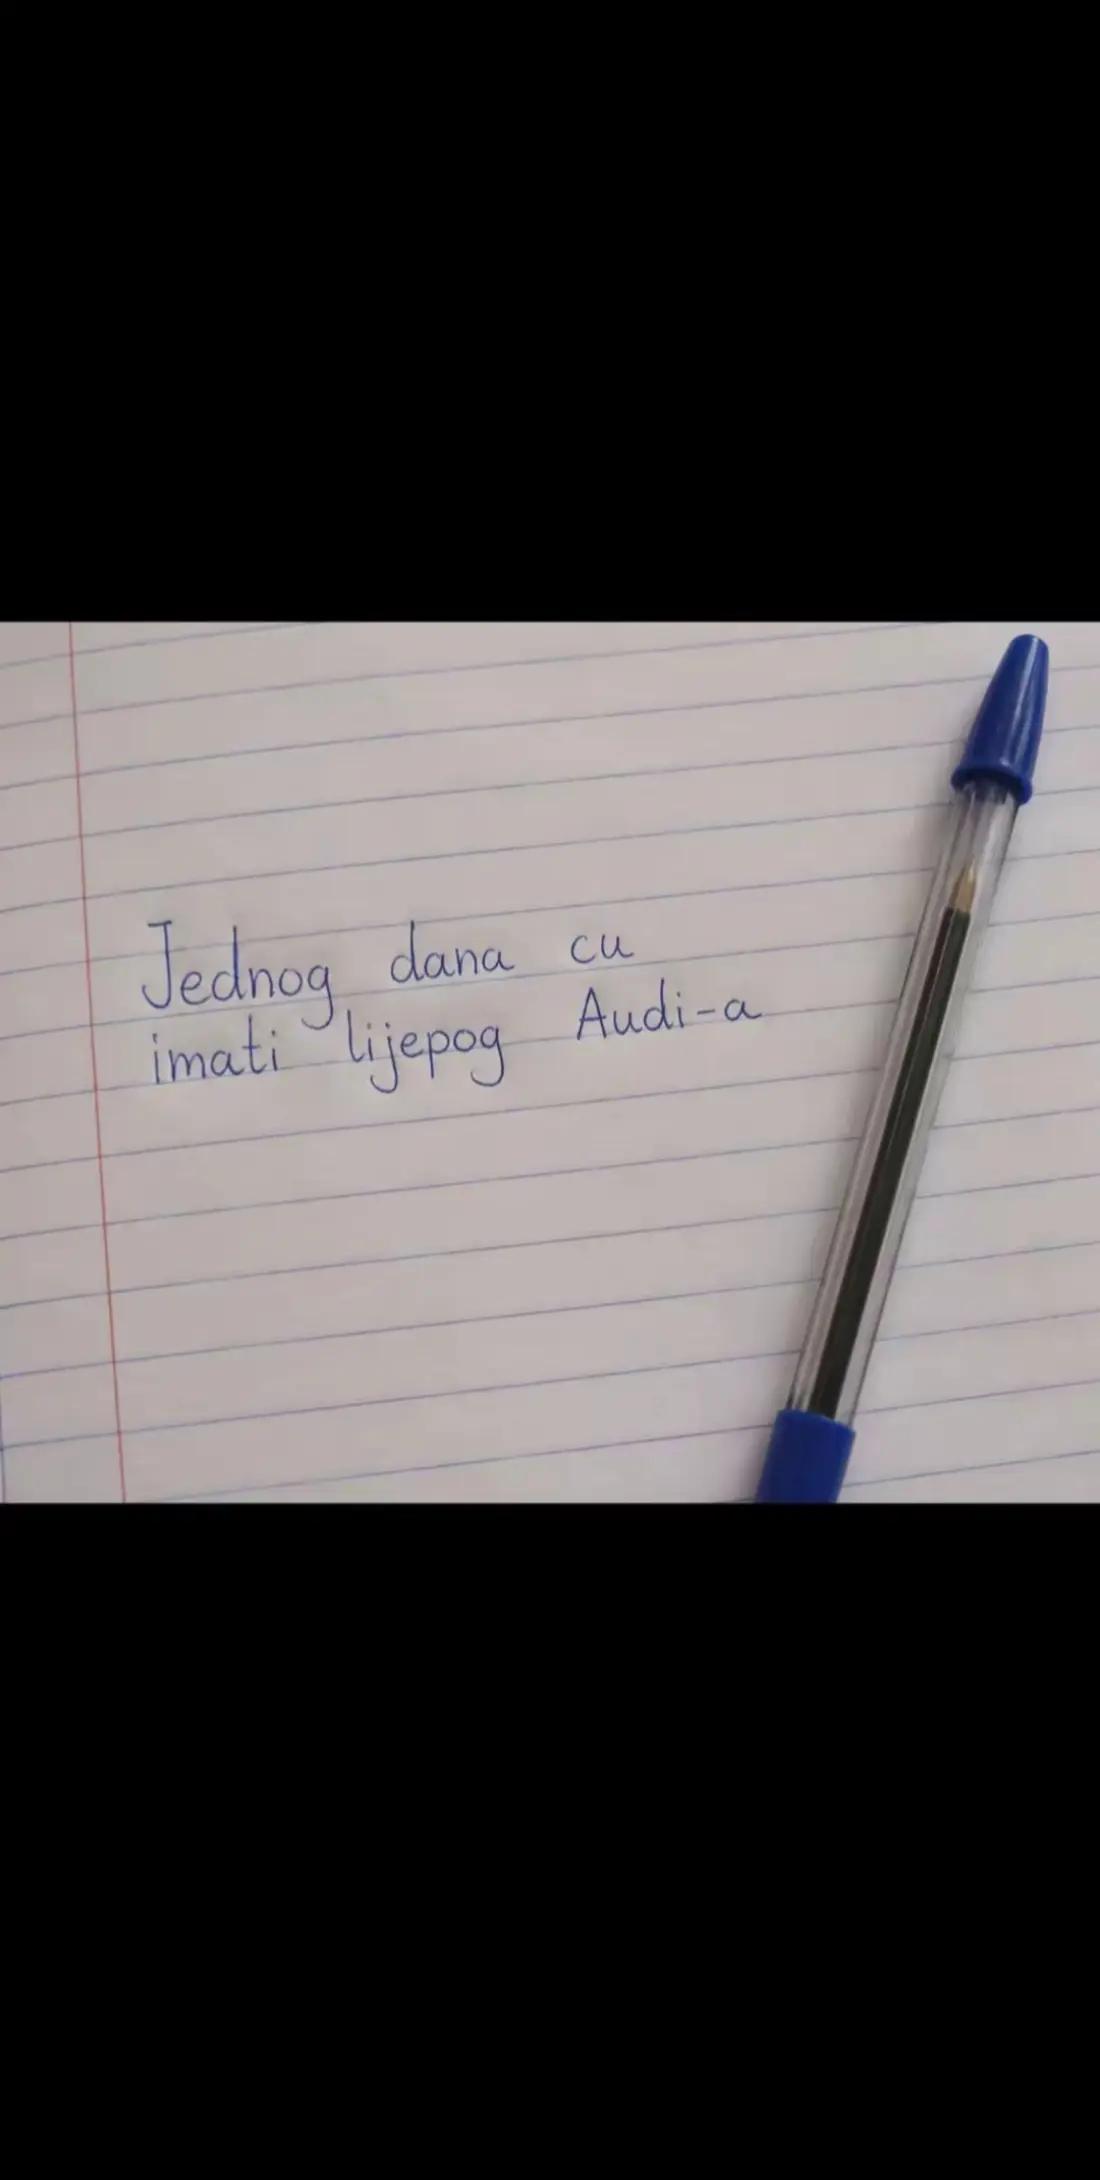 Jednog dana cu
imati lijepog Audi-a